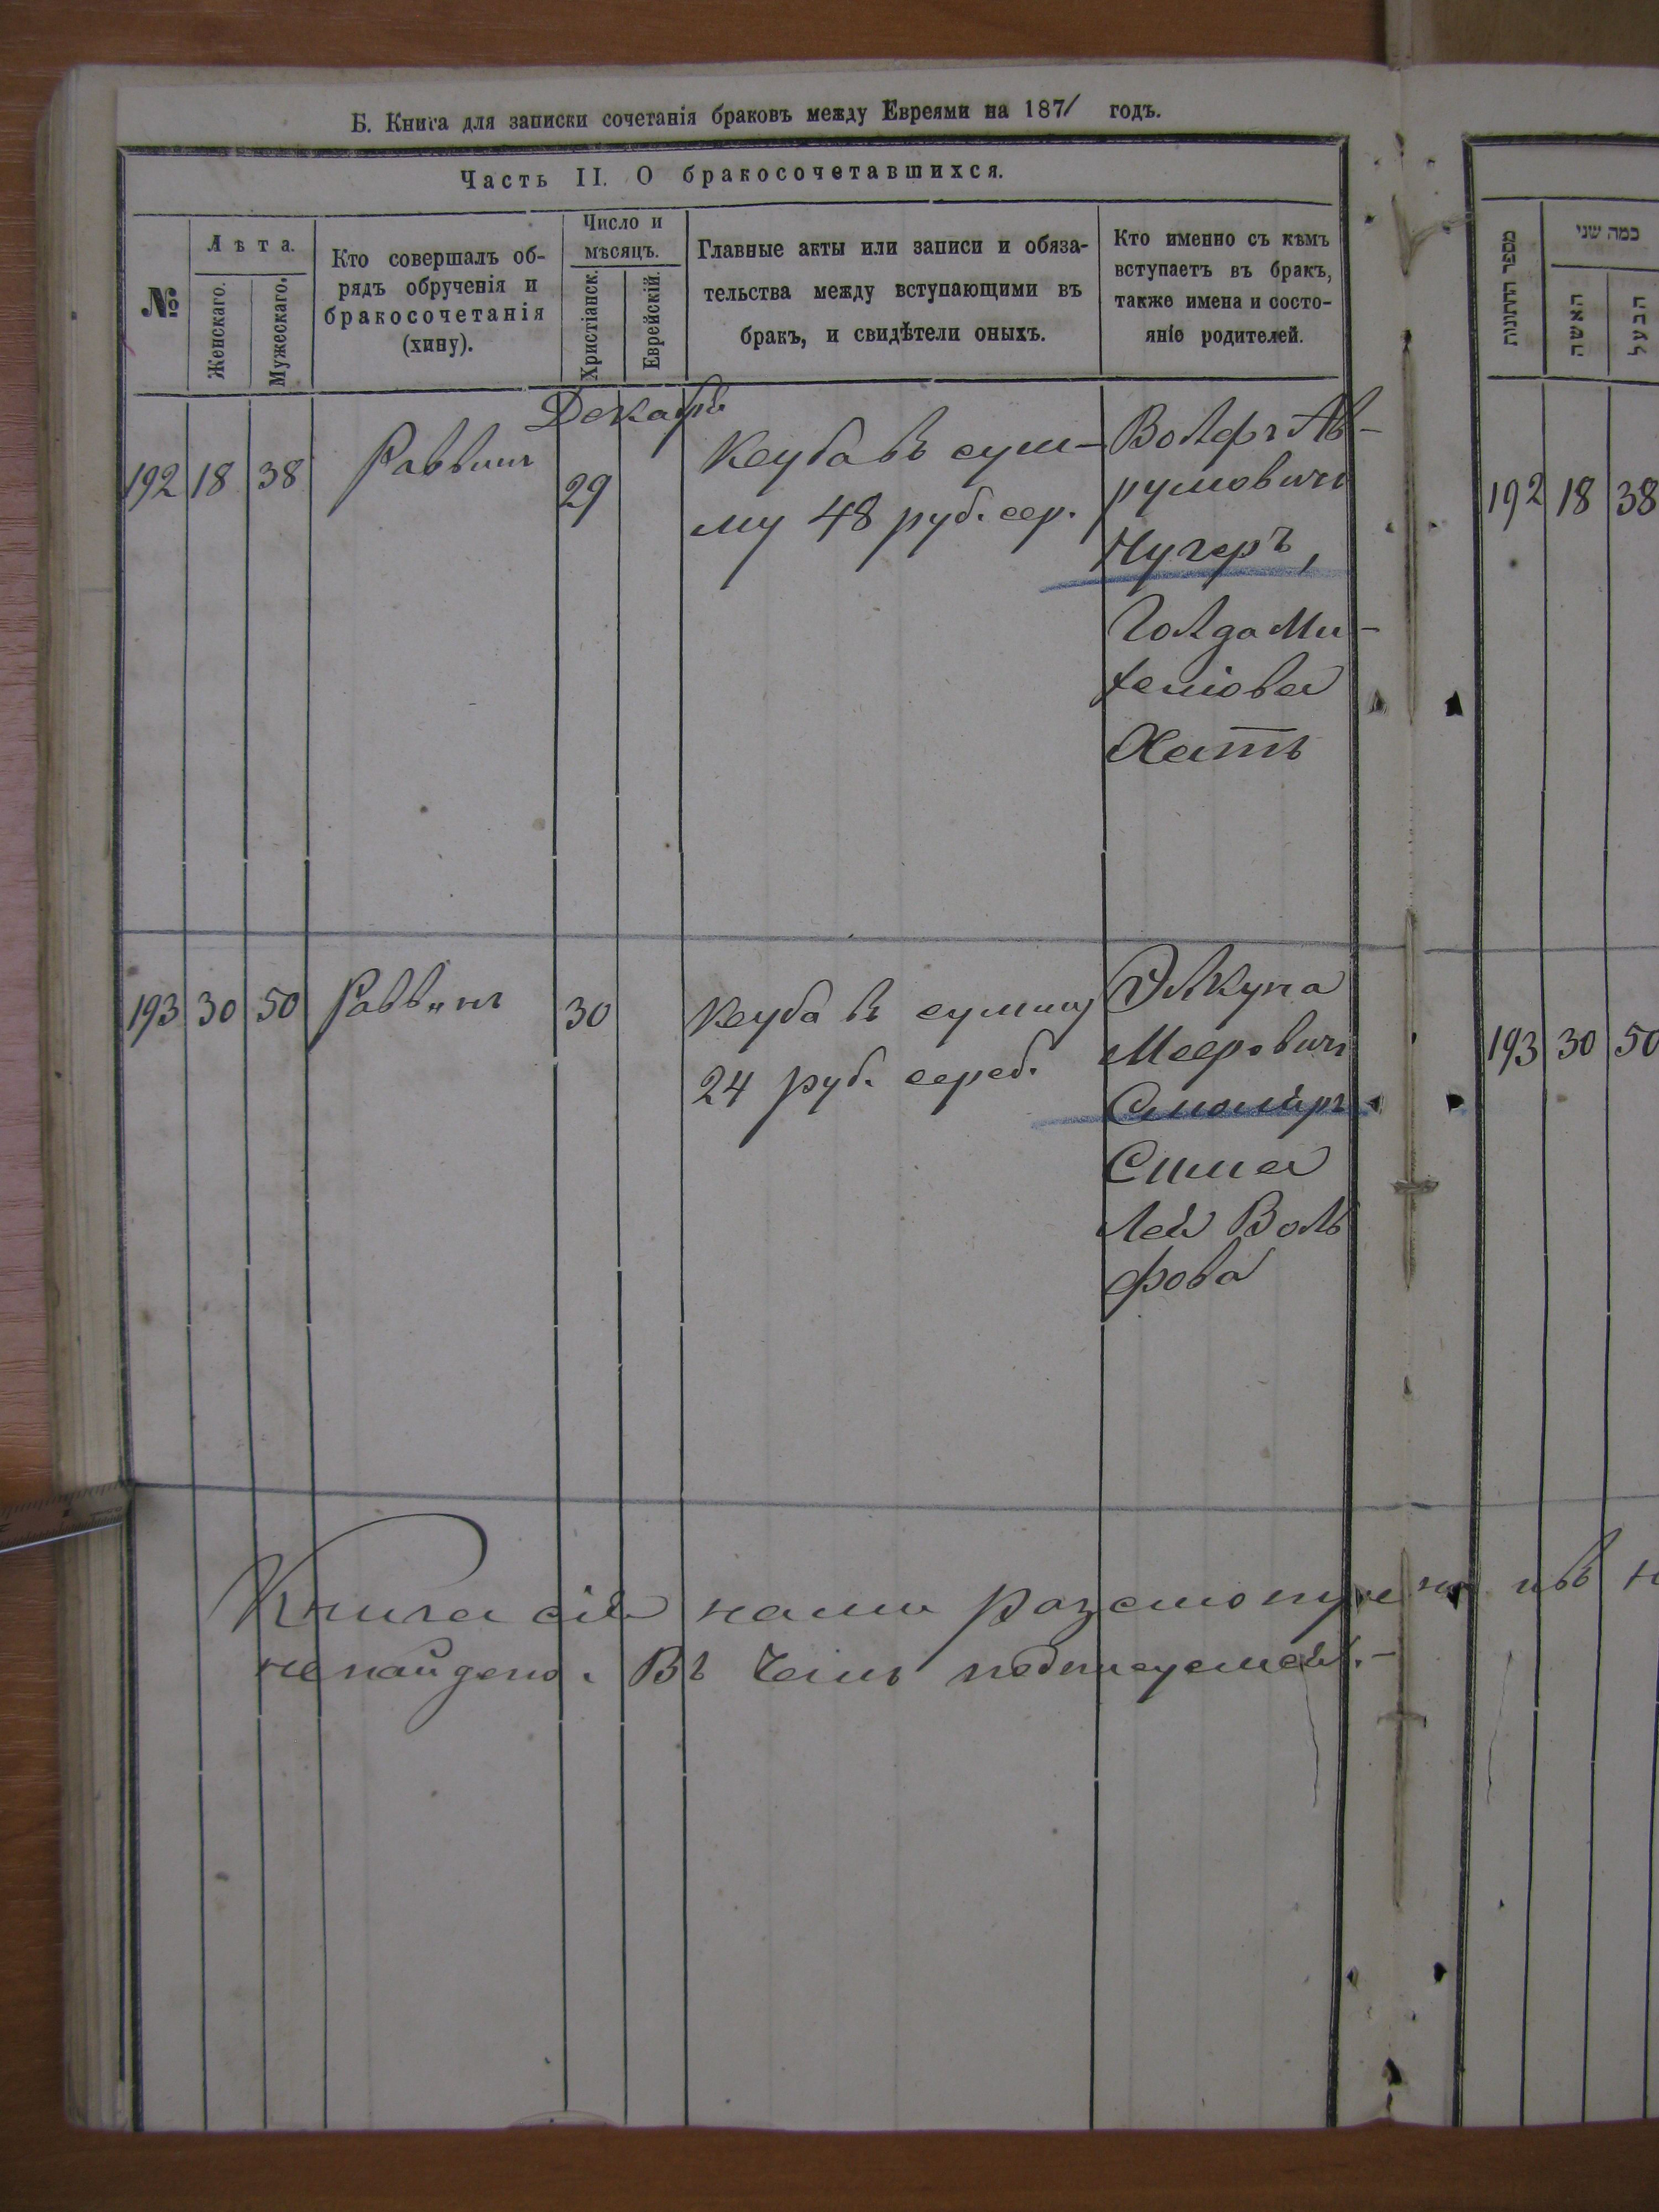 Б. Книга для записки сочетанія браковъ между Евреями на 1871 годъ.
Часть II. О бракосочетавшихся.
№
Лѣта.
Женскаго.
Мужескаго.
Кто совершалъ об-
рядъ обрученія и
бракосочетанія
(хину).
Число и
мѣсяцъ.
Христіанск.
Еврейскій.
Главные акты или записи и обяза-
тельства между вступающими въ
бракъ, и свидѣтели оныхъ.
Кто именно съ кѣмъ
вступаетъ въ бракъ,
также имена и состо-
яніе родителей.
Декабрь
192 18 38 Раввинъ 29
Кеуба въ сум-
му 48 руб. сер.
Волфъ Ав-
румовичъ
Голда Ми-
Хатъ
193 30 50 Раввинъ 30
Кеуба въ сумму
24 руб. сереб.
Элкуна
Мееровичъ
Столяръ
Лея Воль
фова
Книга сія нами разсмотрена
ненайдено. Въ чемъ подписуемся.-
מספר החתונות
כמה שני
האשה
הבעל
192 18 38
193 30 50